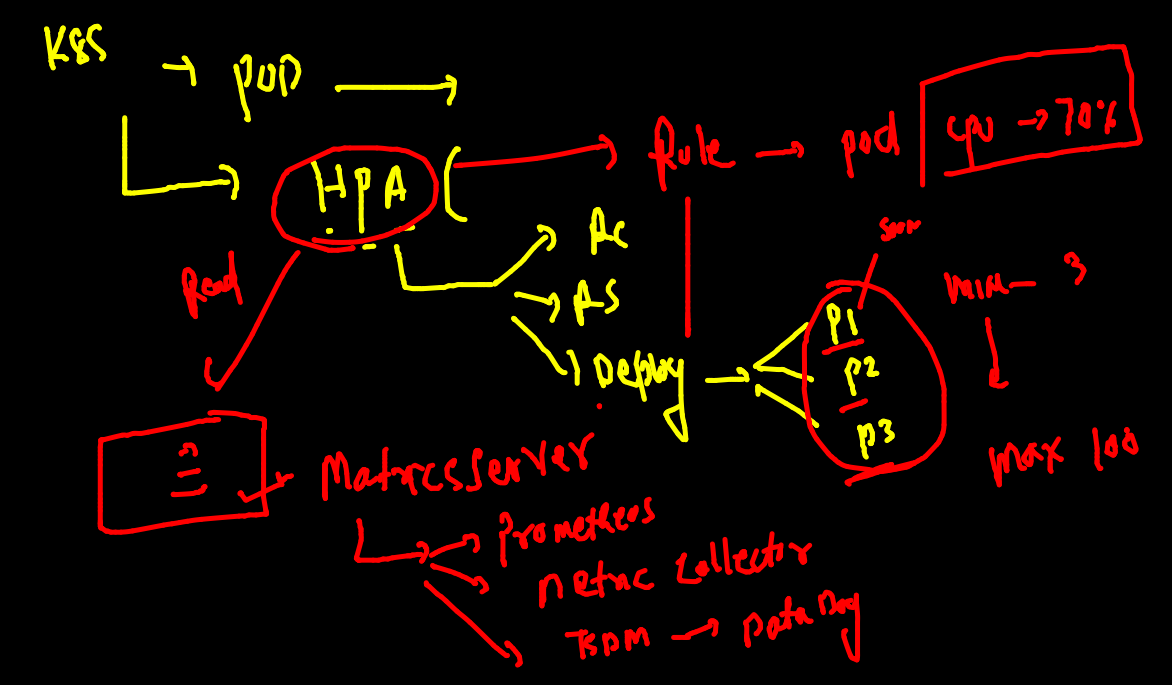 K8S
→ POD →
HPA (
→ Rule → pod
CPU → 70%
RC
RS
Deploy →
P1
P2
P3
min - 3
max 100
Read
MatricsServer
Prometheos
Metric Collector
→ DataDog